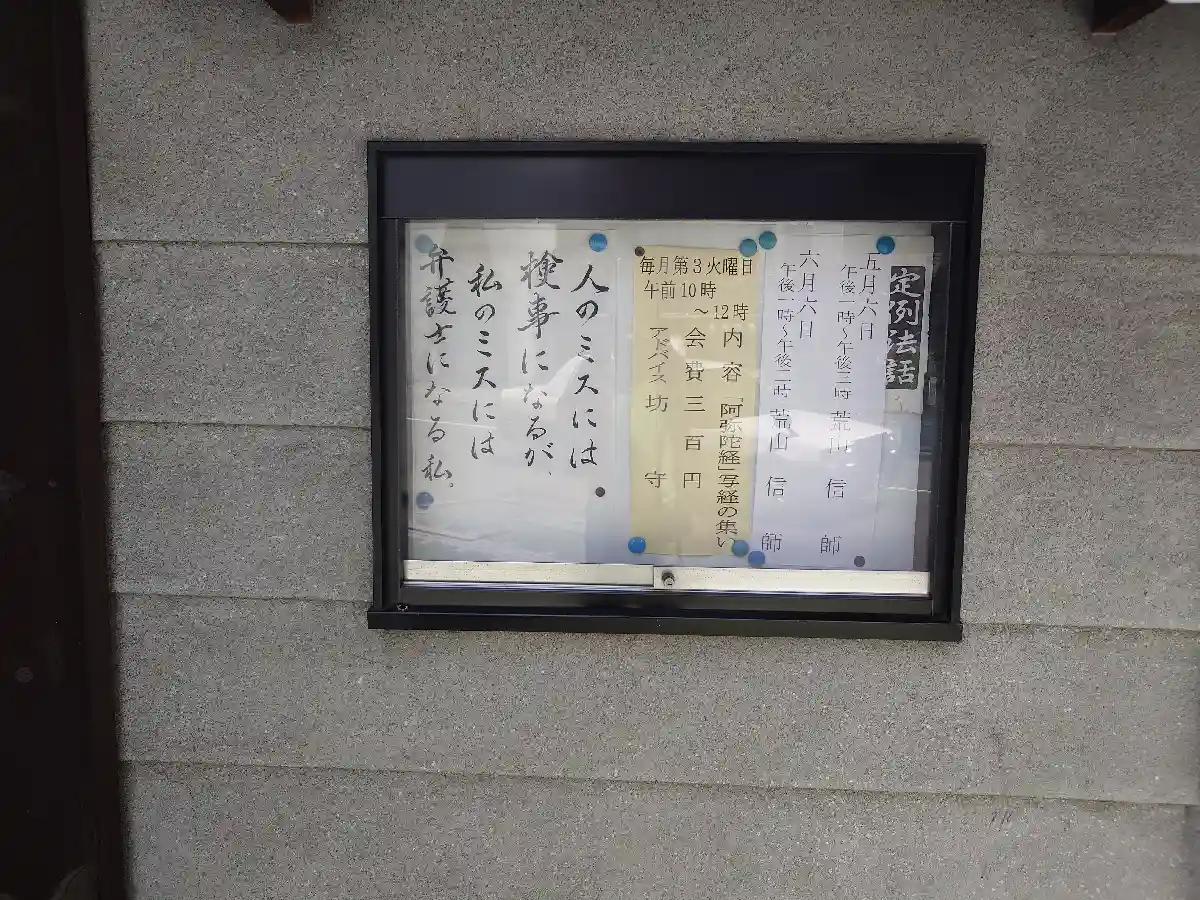 定例法話
五月六日
午後一時〜午後三時 荒山 信 師
六月六日
午後一時〜午後二時 荒山 信 師
毎月第3火曜日
午前10時
〜12時
内容「阿弥陀経」写経の集い
会費三百円
アドバイス 坊守
人のミスには
検事になるが、
私のミスには
弁護士になる私。